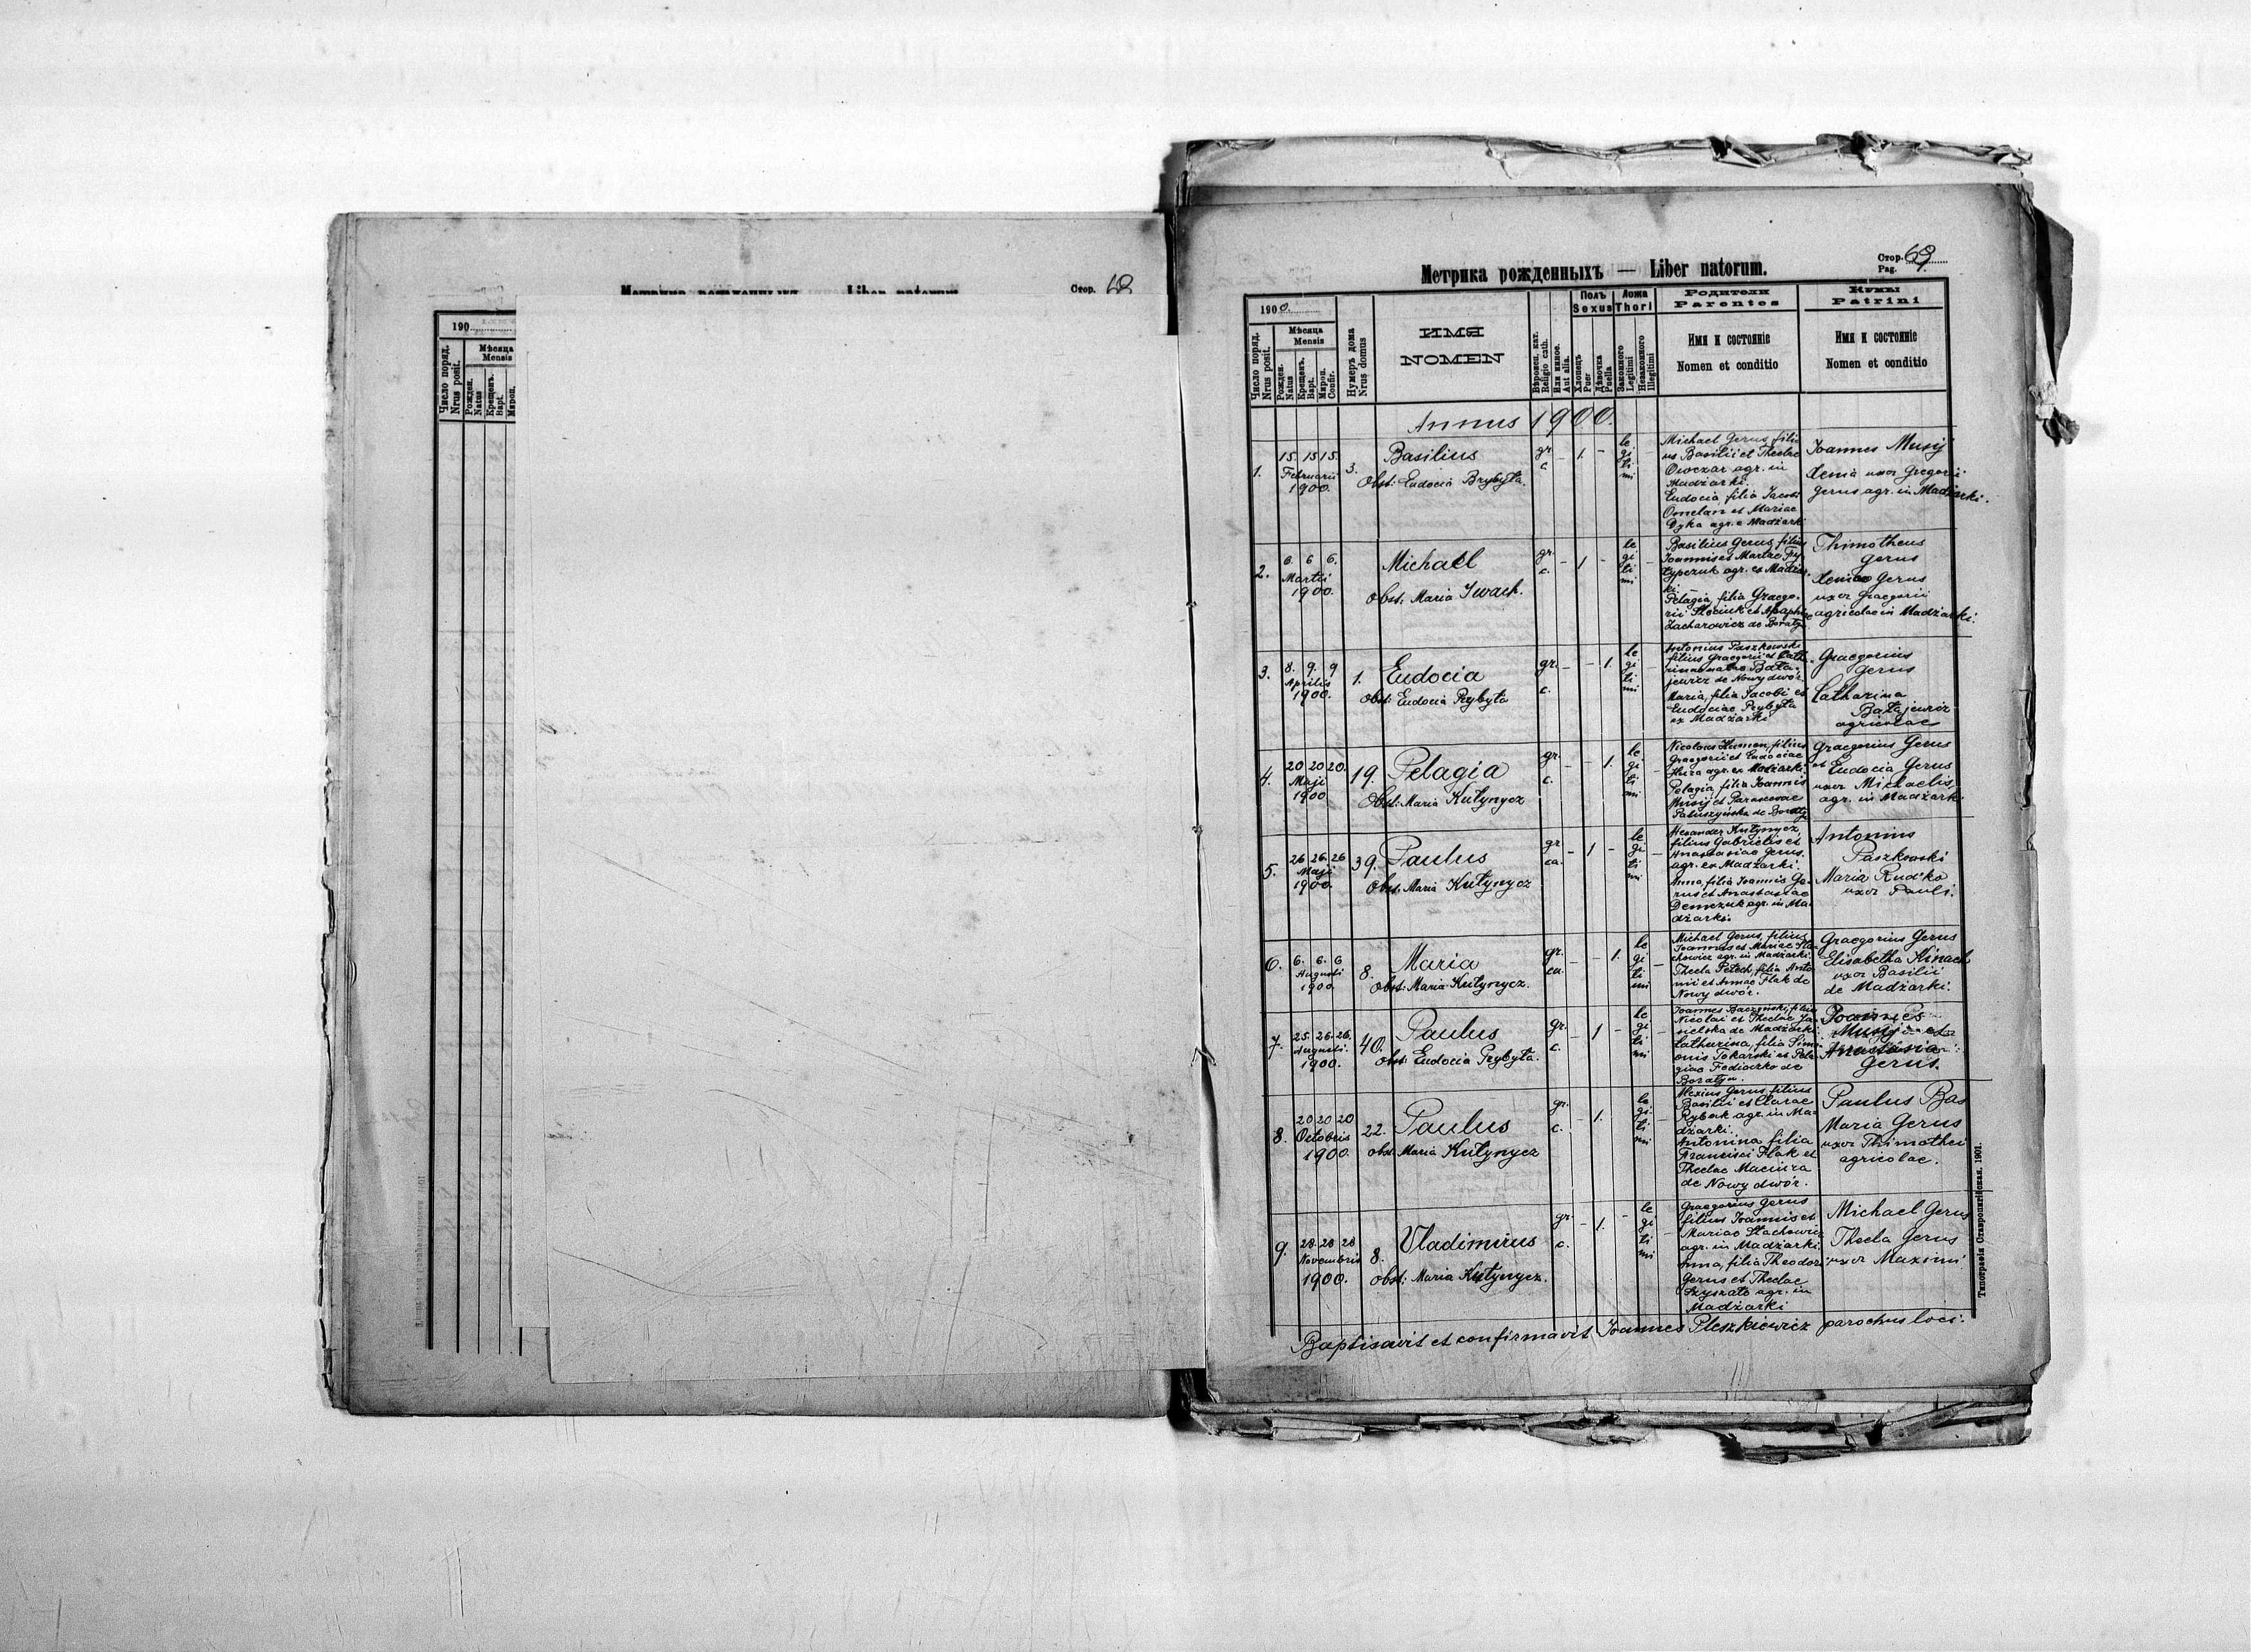 Стор. 68
190
Число поряд.
Nrus posit.
Мѣсяца
Mensis
Рожден.
Natus
Крещенъ.
Bapt.
Миропом.
Метрика рожденныхъ — Liber natorum.
Стор. 69
Pag.
1900.
Число поряд.
Nrus posit.
Мѣсяца
Mensis
Рожден.
Natus
Крещенъ.
Bapt.
Мироп.
Confir.
Нумеръ дома
Nrus domus
ИМЯ
NOMEN
Вѣроисп. кат.
Religio cath.
Или иное.
Aut alia.
Полъ
Sexus
Хлопецъ
Puer
Дѣвочка
Puella
Ложа
Thori
Законного
Legitimi
Незаконного
Illegitimi
Родители
Parentes
Имя и состоянiе
Nomen et conditio
Кумы
Patrini
Имя и состоянiе
Nomen et conditio
Annus 1900.
1.
15. 15 15.
Februarii
1900.
3.
Basilius
Obst: Eudocia Brybyła.
gr.
c.
- 1. -
le
gi
ti
mi
Michael Gerus, fili
us Basilii et Theclae
Owczar agr. in
Madżarki.
Eudocia filia Jacobi
Omelan et Mariae
Dyka agr. e Madżarki
Joannes Musij
Xenia uxor Gregorii
Gerus agr. in Madżarki.
2.
6. 6 6.
Martii
1900.
Michael
Obst: Maria Iwach.
gr.
c.
- 1 -
le
gi
ti
mi
Basilius Gerus, filius
Joannis et Martae
agr. ex Madżar-
ki.
Pelagia, filia Graego-
rii et Agaphiae
Zacharowicz de Boratyn
Thimotheus
Gerus
Xenia Gerus
uxor Graegorii
agricolae in Madżarki.
3.
8. 9. 9
Aprilis
1900.
1.
Eudocia
obst: Eudocia Przybyła
gr.
c.
- - 1.
le
gi
ti
mi
Antonius Paszkowski
filius Graegorii et Cath
natae Bała-
jewicz de Nowydwór.
Maria, filia Jacobi et
Eudociae Przybyła
ex Madżarki
Graegorius
Gerus
Catharina
Bałajewicz
agricolae
4.
20 20 20.
Maji
1900
19.
Pelagia
Obst: Maria Kutynycz
gr.
c.
- - 1.
le
gi
ti
mi
Nicolaus Human, filius
Graegorii et Eudociae
agr. ex Madżarki
Pelagia, filia Joannis
Musij et Parascevae
Paluszyńska de Boratyn
Graegorius Gerus
et Eudocia Gerus
uxor Michaelis,
agr. in Madżarki
5.
26 26. 26
Maji
1900.
39.
Paulus
Obst: Maria Kutynycz
gr.
ca.
- 1 -
le
gi
ti
mi
Alexander Kutynycz,
filius Gabrielis et
Anastasiae Gerus.
agr. ex Madżarki.
Anna, filia Joannis Ge-
rus et Anastasiae
Demczuk agr. in Ma-
dżarki.
Antonius
Paszkowski
Maria Rudko
uxor Pauli.
6.
6. 6. 6
Augusti
1900.
8.
Maria
Obst: Maria Kutynycz.
gr.
ca.
- - 1.
le
gi
ti
mi
Michael Gerus, filius
Joannis et Mariae Sta-
chowicz agr. in Madżarki.
Thecla Petech, filia Anto-
nii et Annae Flak de
Nowy dwór.
Graegorius Gerus
Elisabetha Kinach
uxor Basilii
de Madżarki.
7.
25. 26. 26.
Augusti.
1900.
40.
Paulus
Obst: Eudocia Przybyła.
gr.
c.
- 1 -
le
gi
ti
mi
Joannes Baczyński, filius
Nicolai et Theclae Ja-
sielska de Madżarki.
Catharina, filia Simo-
onis Tokarski et Pela-
giae Fediaczko de
Boratyn.
Joannes
Musij et
Anastasia
Gerus.
8.
20 20 20
Octobris
1900.
22.
Paulus
obst: Maria Kutynycz
gr.
c.
- 1.
le
gi
ti
mi
Alexius Gerus, filius
Basilii et Clarae
Rybak agr. in Ma-
dżarki.
Antonina filia
Francisci Flak et
Theclae Maciura
de Nowy dwór.
Paulus Bas
Maria Gerus
uxor Thimothei
agricolae.
9.
28. 28 28
Novembris
1900.
8.
Vladimirus
obst: Maria Kutynycz.
gr.
c.
- 1. -
le
gi
ti
mi
Graegorius Gerus
filius Joannis et
Mariae Stachowicz
agr. in Madżarki.
Anna, filia Theodori
Gerus et Theclae
agr. in
Madżarki
Michael Gerus
Thecla Gerus
uxor Maximi
Baptisavit et confirmavit Joannes Pleszkiewicz parochus loci.
Типографiя Ставропигiйская. 1901.